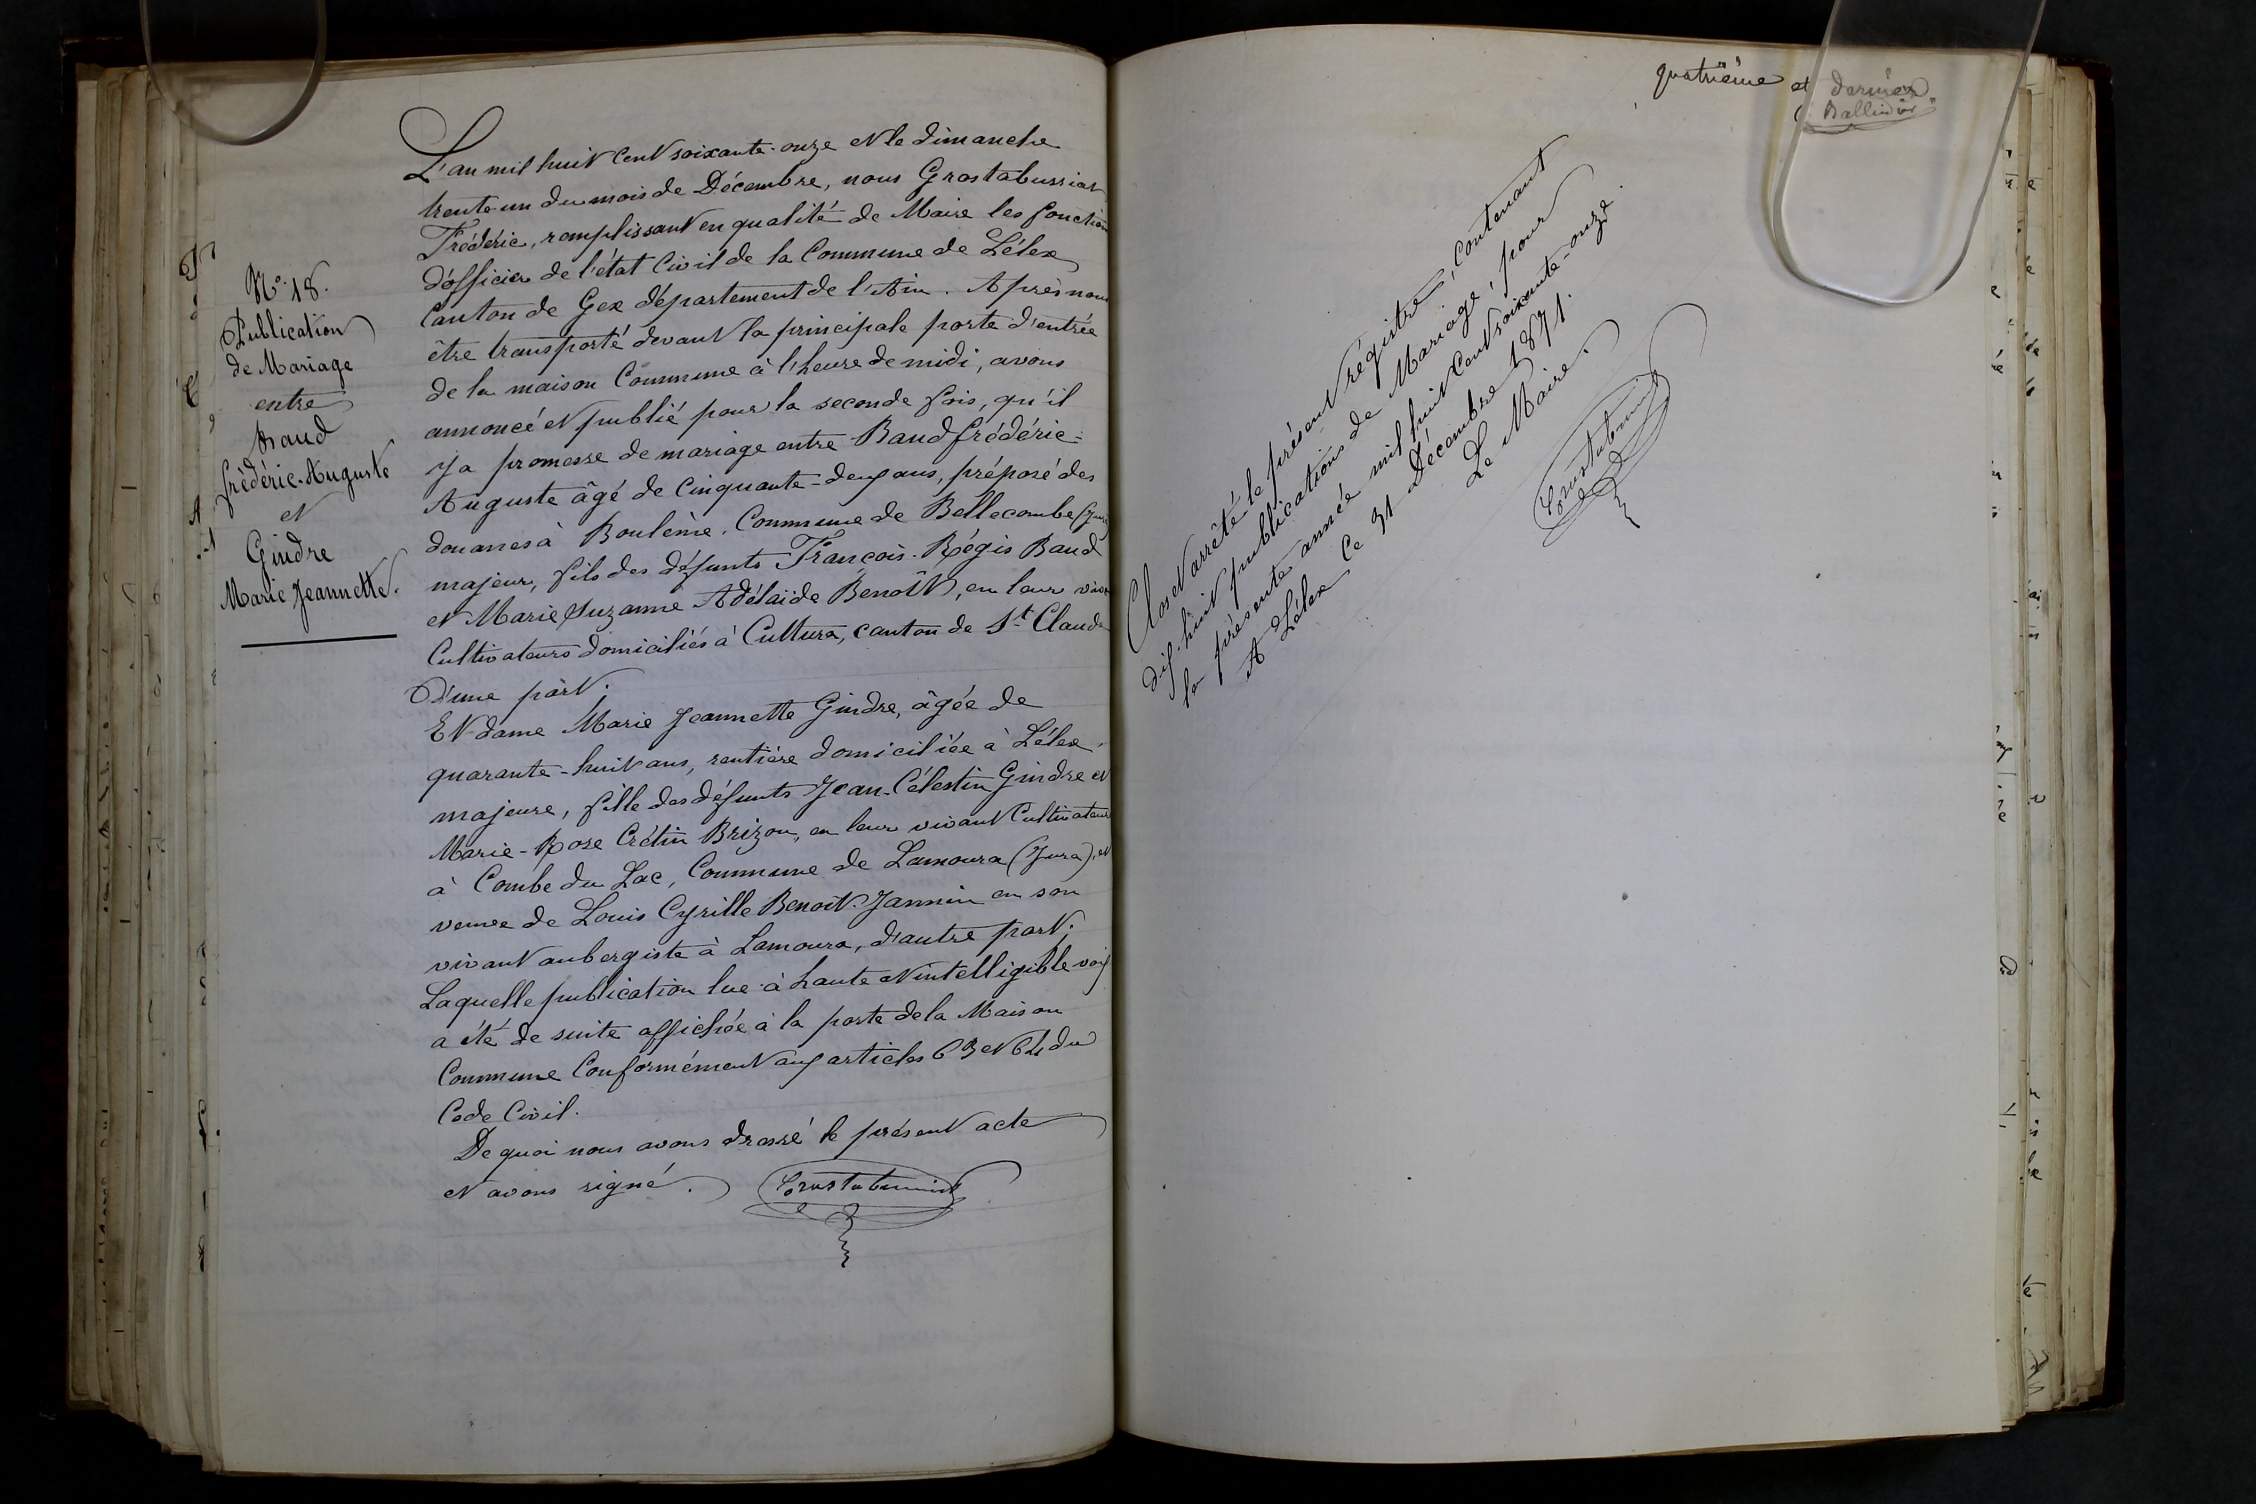 N° 18.
Publication
de Mariage
entre
Baud
frédéric-Auguste
et
Gindre
Marie Jeannette.
L'an mil huit cent soixante-onze et le dimanche
trente un du mois de Décembre, nous Grostabussiat
Frédéric, remplissant en qualité de Maire les fonction
d'officier de l'état Civil de la Commune de Lélex
Canton de Gex département de l'Ain. Après nous
être transporté devant la principale porte d'entrée
de la maison Commune à l'heure de midi, avons
annoncé et publié pour la seconde fois, qu'il
y a promesse de mariage entre Baud frédéric-
Auguste âgé de Cinquante-deux ans, préposé des
douanes à Boulème, Commune de Bellecombe (Jura)
majeur, fils des défunts François-Régis Baud
et Marie Suzanne Adélaïde Benoît, en leur vivant
Cultivateurs domiciliés à Cuttura, canton de St Claude
D'une part.
Et dame Marie Jeannette Gindre, âgée de
quarante-huit ans, rentière domiciliée à Lélex,
majeure, fille des défunts Jean-Célestin Gindre et
Marie-Rose Crétin Brizon, en leur vivant Cultivateurs
à Combe du Lac, Commune de Lamoura (Jura), et
veuve de Louis Cyrille Benoit-Jannin en son
vivant aubergiste à Lamoura, d'autre part;
Laquelle publication lue à haute et intelligible voix
a été de suite affichée à la porte de la Maison
Commune Conformément aux articles 63 et 64 du
Code Civil.
De quoi nous avons dressé le présent acte
et avons signé.
Grostabussiat
quatrième et dernier
Ballivier
Clos et arrêté le présent régistre, contenant
dix-huit publications de Mariage, pour
la présente année mil huit Cent soixante-onze.
A Lélex Ce 31 Décembre 1871.
Le Maire.
Grostabussiat